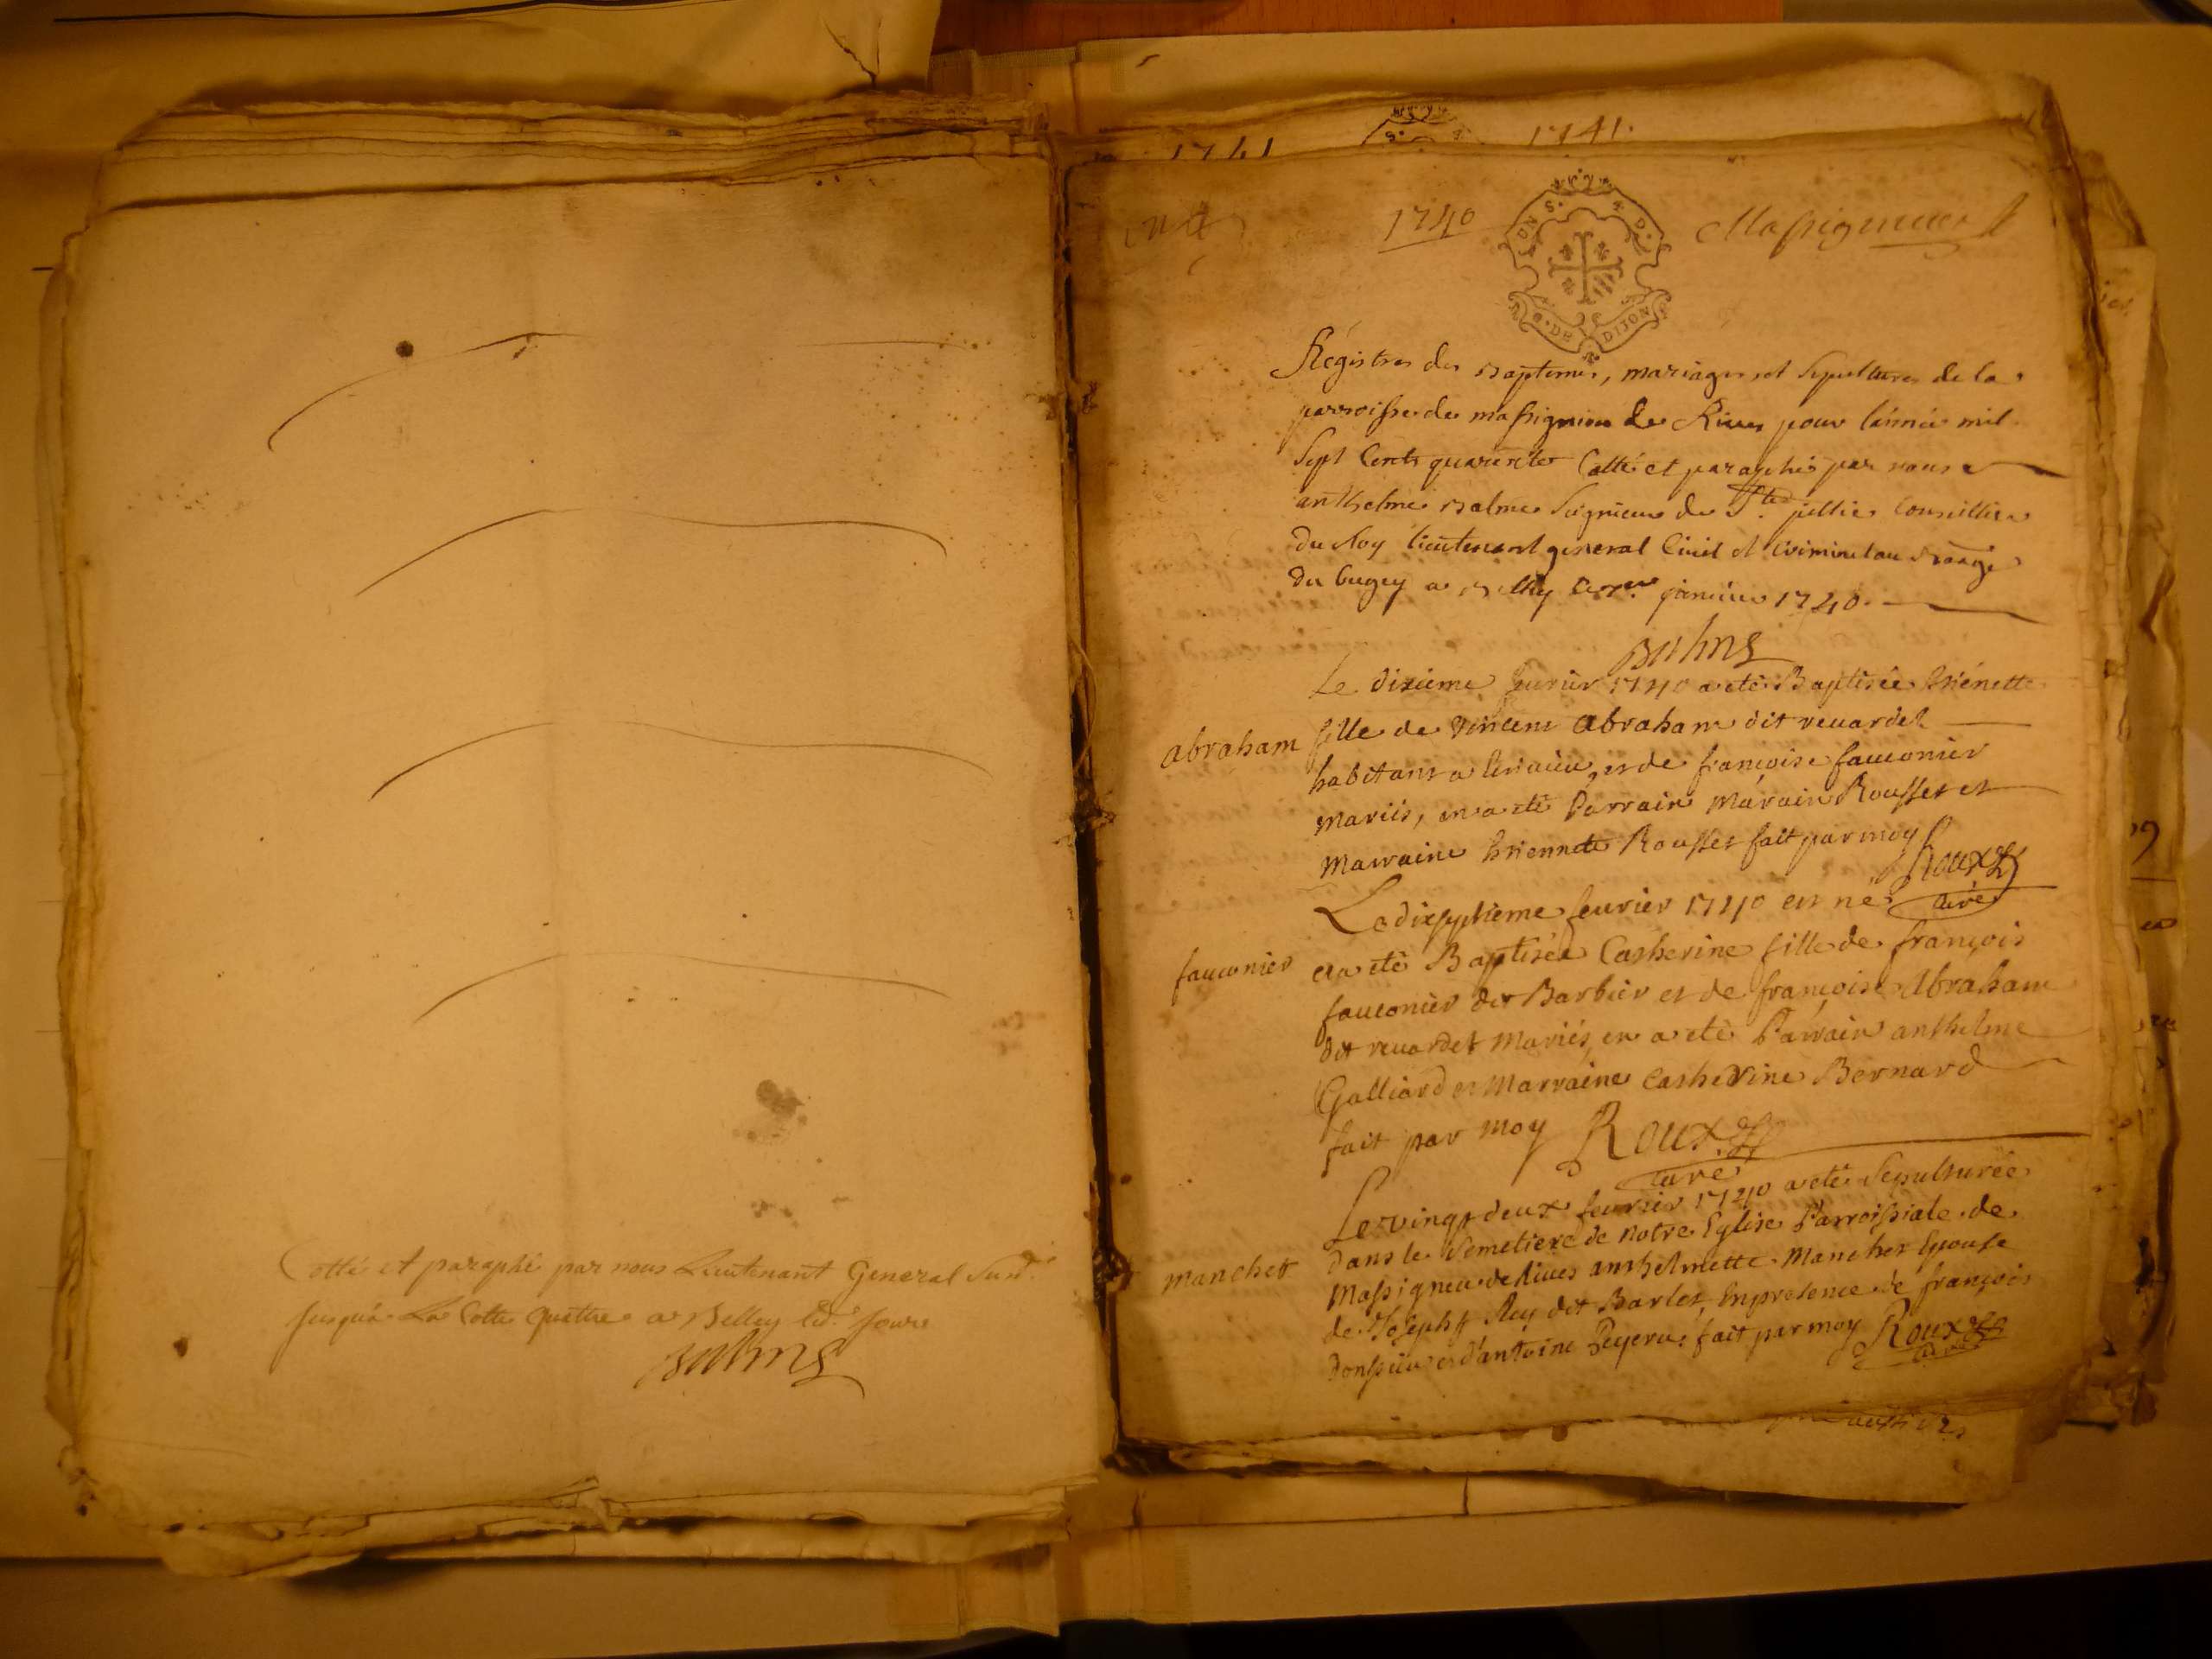 Cotté et paraphé par nous Lieutenant General Susd.
Jusqua La Cotte quattre a Belley led. Jour
Balme
1741 1741.
1740
GON S. D.
G. DE DIJON
Massigneux
Régistres des Baptemes, mariages et Sepultures de la
parroisse de massignieu de Rives pour lannée mil
Sept Cents quarente Cotté et paraphé par nous
anthelme Balme Seigneur de Ste jullie Conseiller
du Roy lieutenant general Civil et Criminel au Bailliage
du bugey a Belley janvier 1740.
Balme
Le dixieme fevrier 1740 a eté Baptisée Etiénette
abraham
fille de Vincent Abraham dit revardet
habitant a et de françoise fauconier
mariés, en a eté Parrain Rousset et
Marraine Etiennete Rousset fait par moy
Roux
curé
Le dixseptieme fevrier 1740 est né
fauconier
et a eté Baptisée Catherine fille de françois
fauconier dit Barbier et de françoise Abraham
dit revardet mariés, en a eté Parrain anthelme
Galliard et Marraine Catherine Bernard
fait par moy Roux
curé
Le vingt deux fevrier 1740 a eté Sepulturée
manchet
dans le Semetiere de notre Eglise Parroissiale de
Massigneu de Rives anthelmette Manchet Epouse
de Joseph Rey dit Barlet, En presence de françois
et d'antoine fait par moy Roux
curé